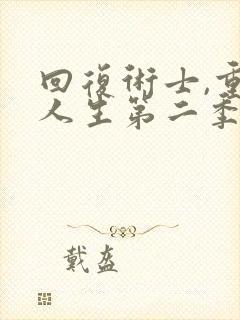 回復術士,重
人生第二季
戴盔